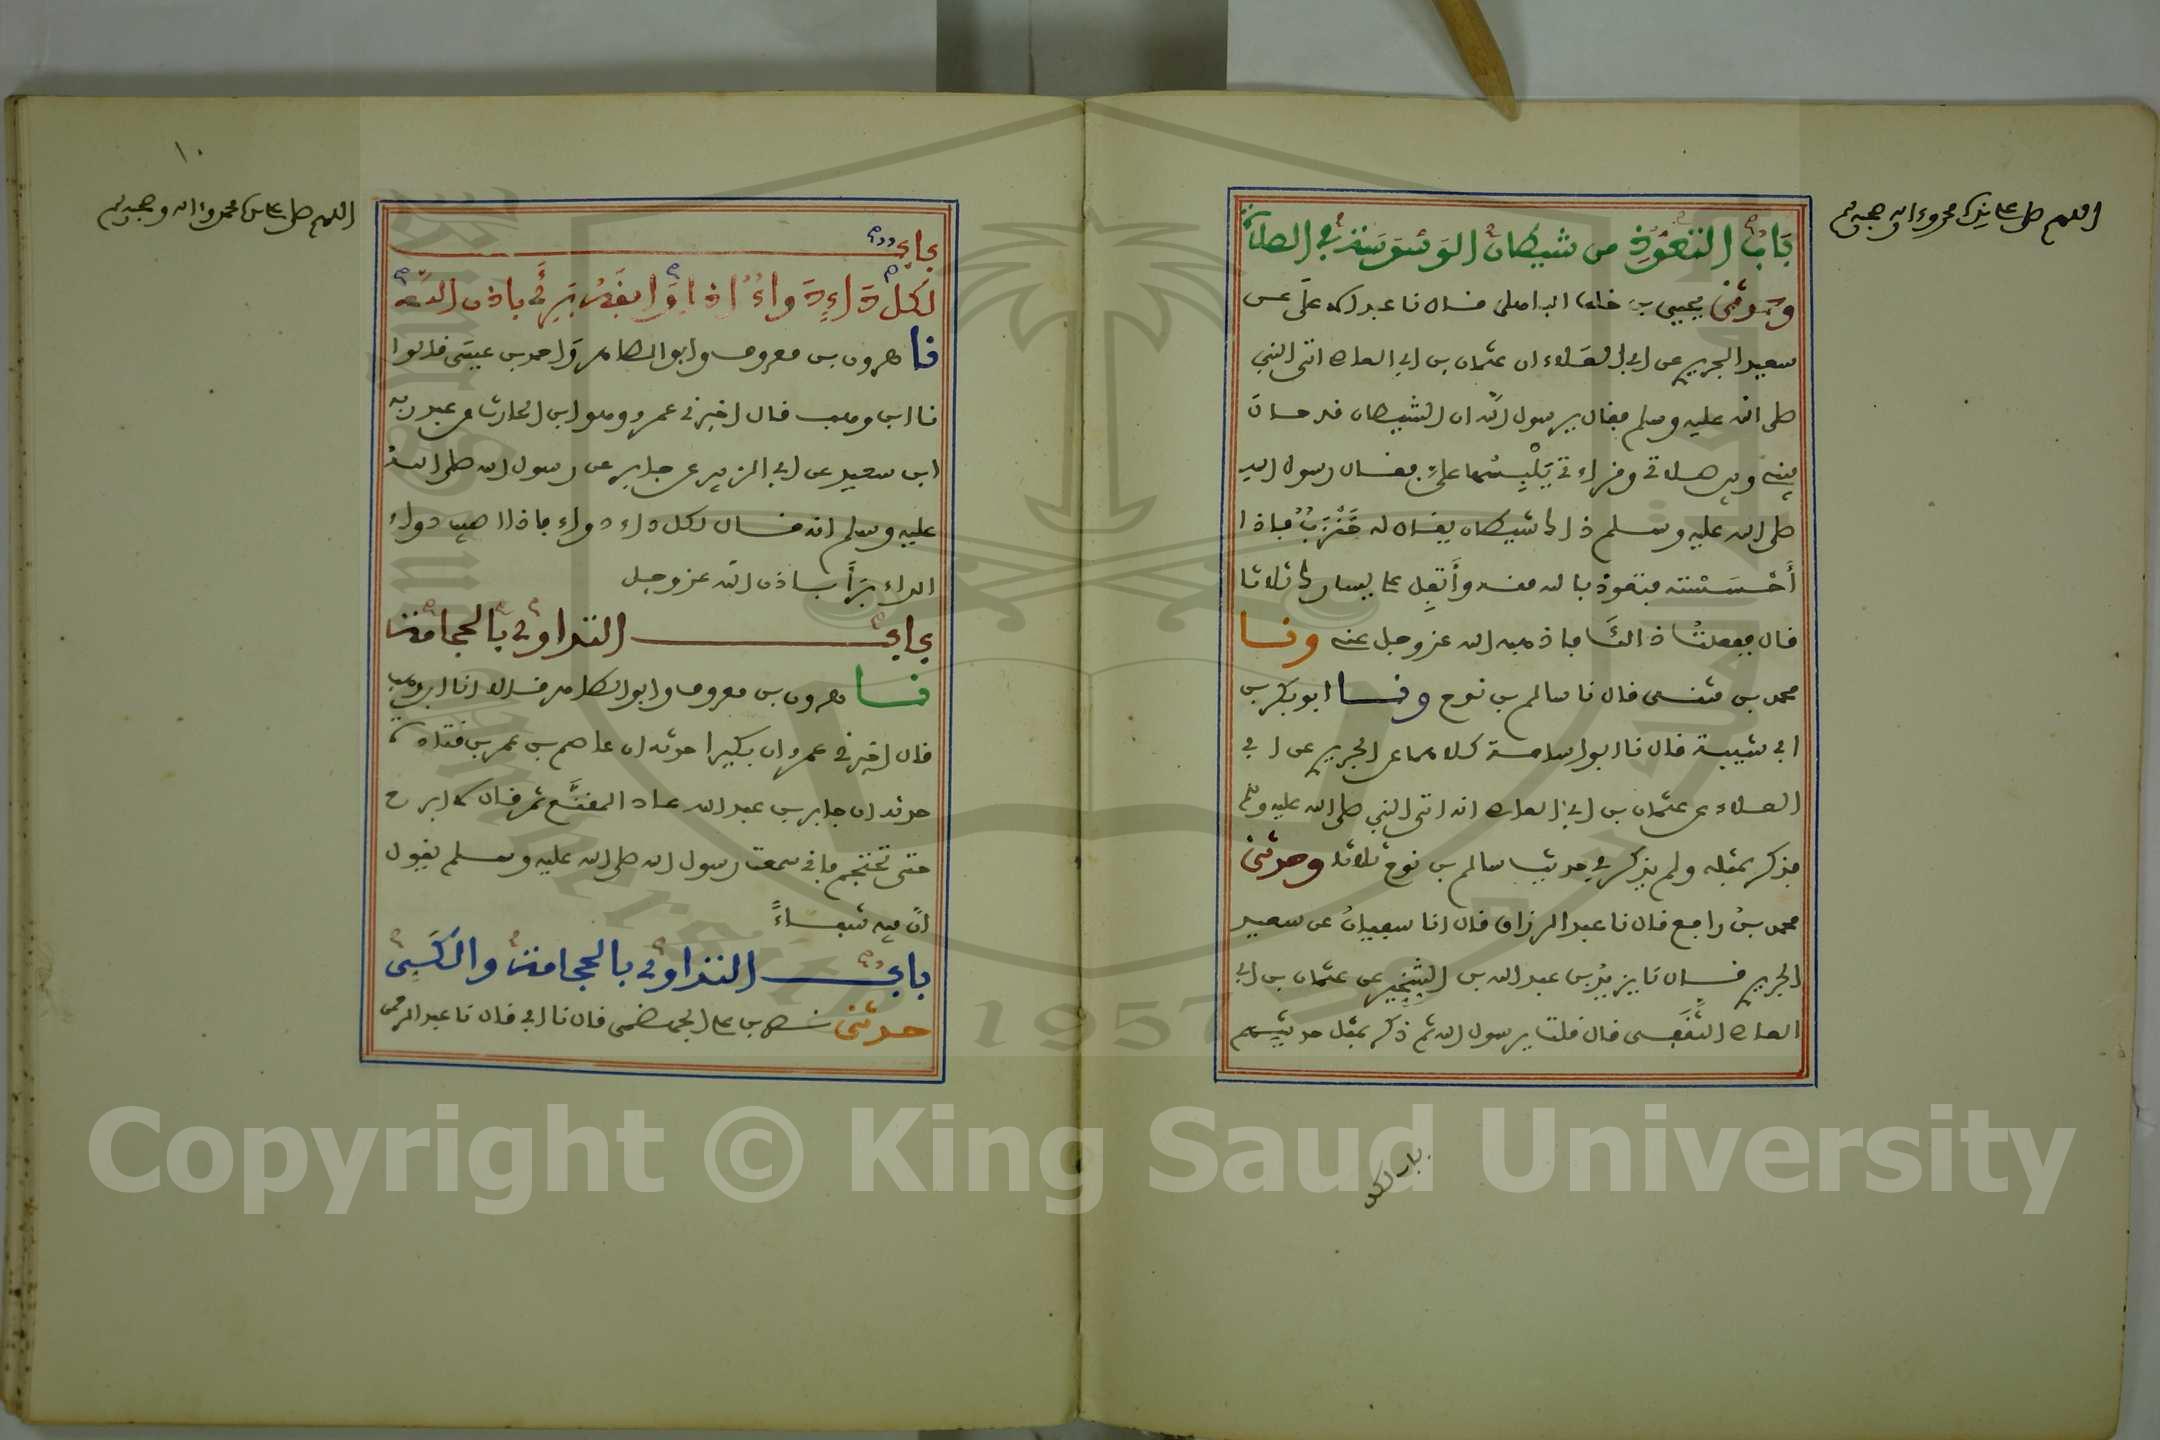 اللهم صل على سيدنا محمد وءاله وصحبه وسلم
باب التعوذ من شيطان الوسوسة في الصلاة
وحدثني يحيى بن خلف الباهلي قال نا عبد الاعلى عن
سعيد الجريري عن ابي العلاء ان عثمان بن ابي العاص اتى النبي
صلى الله عليه وسلم فقال يرسول الله ان الشيطان قد حال
بيني وبين صلاتي وقراءتي يَلْبِسُها عليّ فقال رسول الله
صلى الله عليه وسلم ذاك شيطان يقال له خَنْزَبٌ فإذا
أَحْسَسْته فتعوذ بالله منه وأتفل على يسارك ثلاثا
قال ففعلتُ ذالك فاذهبه الله عز وجل عني ونا
محمد بن مثنى قال نا سالم بن نوح ونا ابو بكر بن
ابي شيبة قال نا ابو اسامة كلاهما عن الجريري عن ابي
العلاء عن عثمان بن ابي العاص انه اتى النبي صلى الله عليه وسلم
فذكر بمثله ولم يذكر في حديث سالم بن نوح ثلاثا وحدثني
محمد بنُ رافع قال نا عبد الرزاق قال انا سفيانُ عن سعيد
الجريري قال نا يزيدُ بن عبد الله بن الشِّخِّير عن عثمان بن ابي
العاص الثَّقَفِي قال قلت يرسول الله ثم ذكر بمثل حديثهم
باب لكل
١٠
اللهم صل على سيدنا محمد وءاله وصحبه وسلم
باب
لكلّ دَاءٍ دَوَاءٌ اذا وَافَقه بَرِئَ باذن الله
نا هرون بن معروف وابو الطاهر وَاحمد بن عيسَى قالوا
نا ابن وهب قال اخبرني عمرو وهو ابن الحارث عن عبد ربه
ابن سعيد عن ابي الزبير عن جابر عن رسول الله صلى الله
عليه وسلم انه قال لكل داء دواء فاذا اصيب دواء
الداء بَرَأَ باذن الله عز وجل
باب التداوي بالحجامة
نا هرون بن معروف وابو الطاهر قالا نا ابن وهب
قال اخبرني عمرو ان بكيرا حدثه ان عاصم بن عمر بن قتادة
حدثه ان جابر بن عبد الله عاد المقنَّع ثم قال لا ابرح
حتى تحتجم فاني سمعت رسول الله صلى الله عليه وسلم يقول
انّ فيه شفاءً
باب التداوي بالحجامة والكَيّ
حدثني نصر بن علي الجهضمي قال نا ابي قال نا عبد الرحمن
1957
Copyright © King Saud University